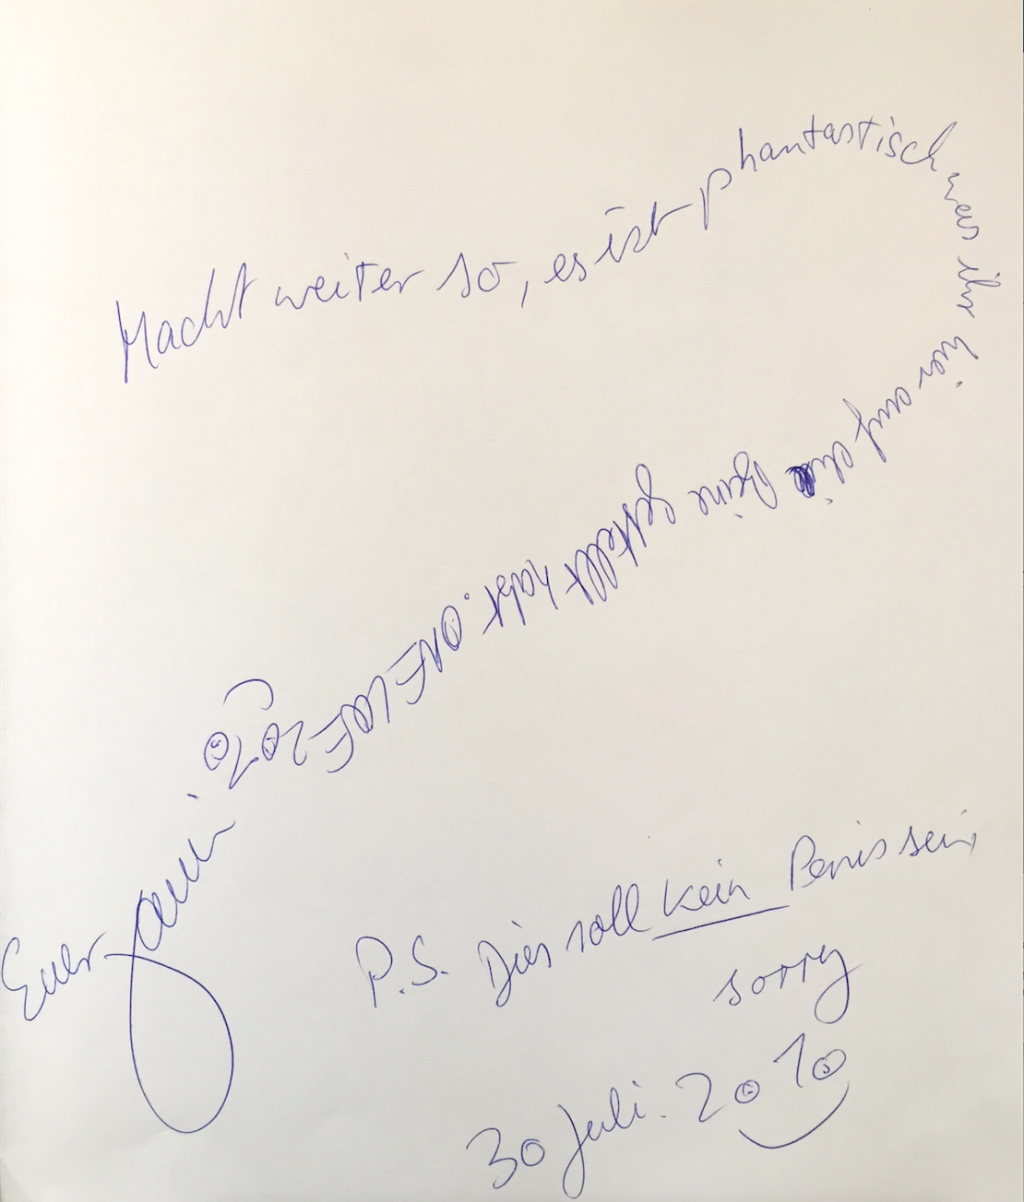 Macht weiter so, es ist phantastisch was ihr hier auf die Beine gestellt habt. ONE LOVE 2010
Euer
P.S. Dies soll kein Penis sein,
sorry
30 Juli. 2010